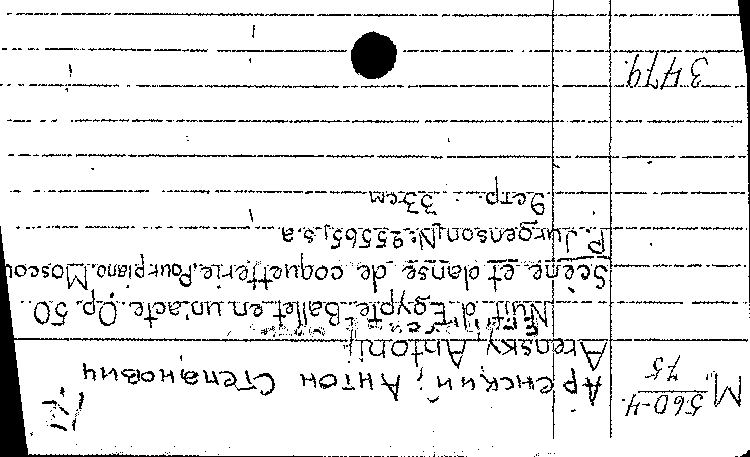 М 560-4
75
Аренский, Антон Степанович
Arensky Antonij
Nuit d'Egypte. Ballet en un acte. Op. 50
Scène et danse de coquetterie. Pour piano. Moscou
P. Jurgenson, N: 25565, s.a
9 стр. 33 см
3479.